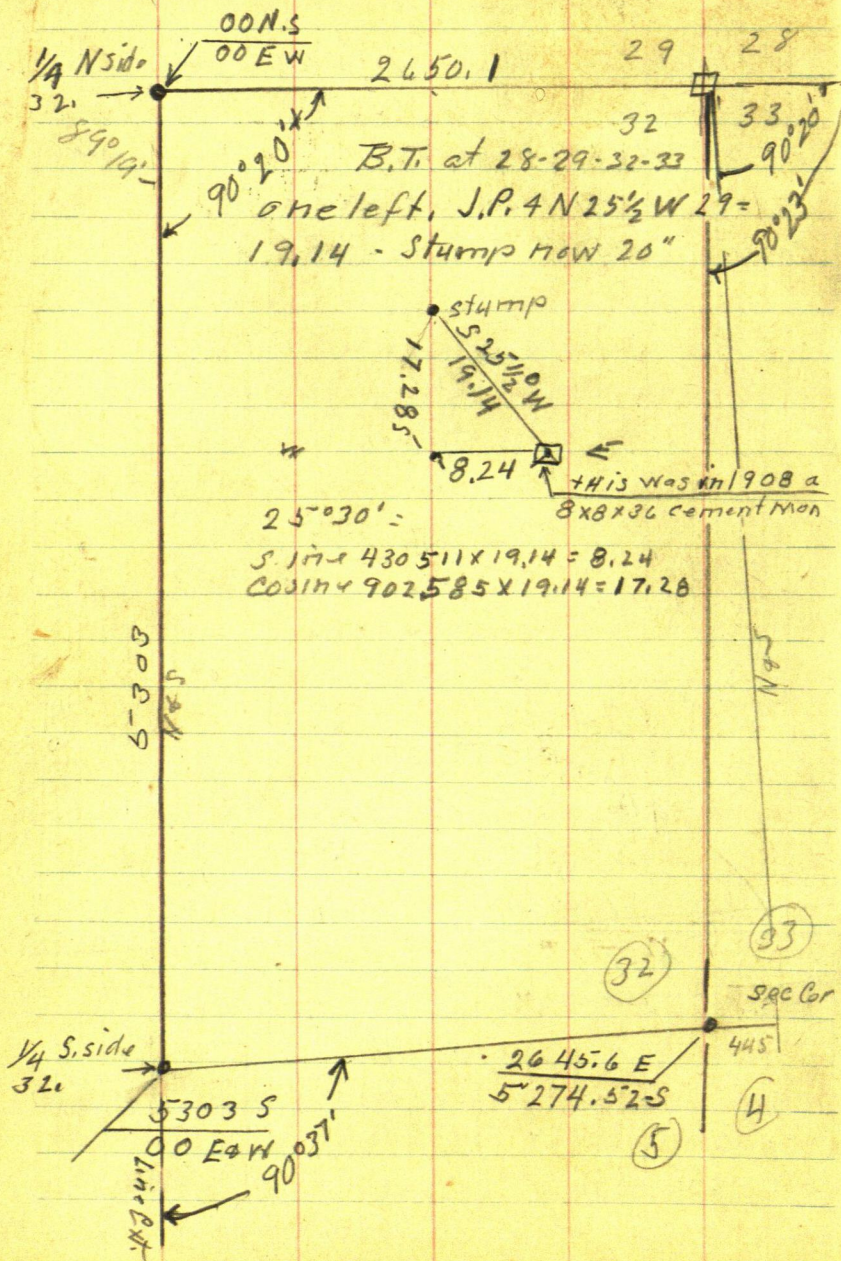 00 N.S
00 E W
1/4 N side
32.
2650.1
29
28
32
33
89°19'
90°20'
90°20'
90°23'
B.T. at 28-29-32-33
one left, J.P. 4 N 25½ W 29=
19.14 - Stump now 20"
stump
S 25½° W
19.14
17.285
8.24
this was in 1908 a
8x8x36 cement mon
25°30' =
Sine 430511 x 19.14 = 8.24
Cosine 902585 x 19.14 = 17.28
5303
N&S
N&S
33
32
Sec Cor
445
1/4 S. side
32.
2645.6 E
5274.52-S
4
5
5303 S
00 E&W
90°37'
Line Ext.